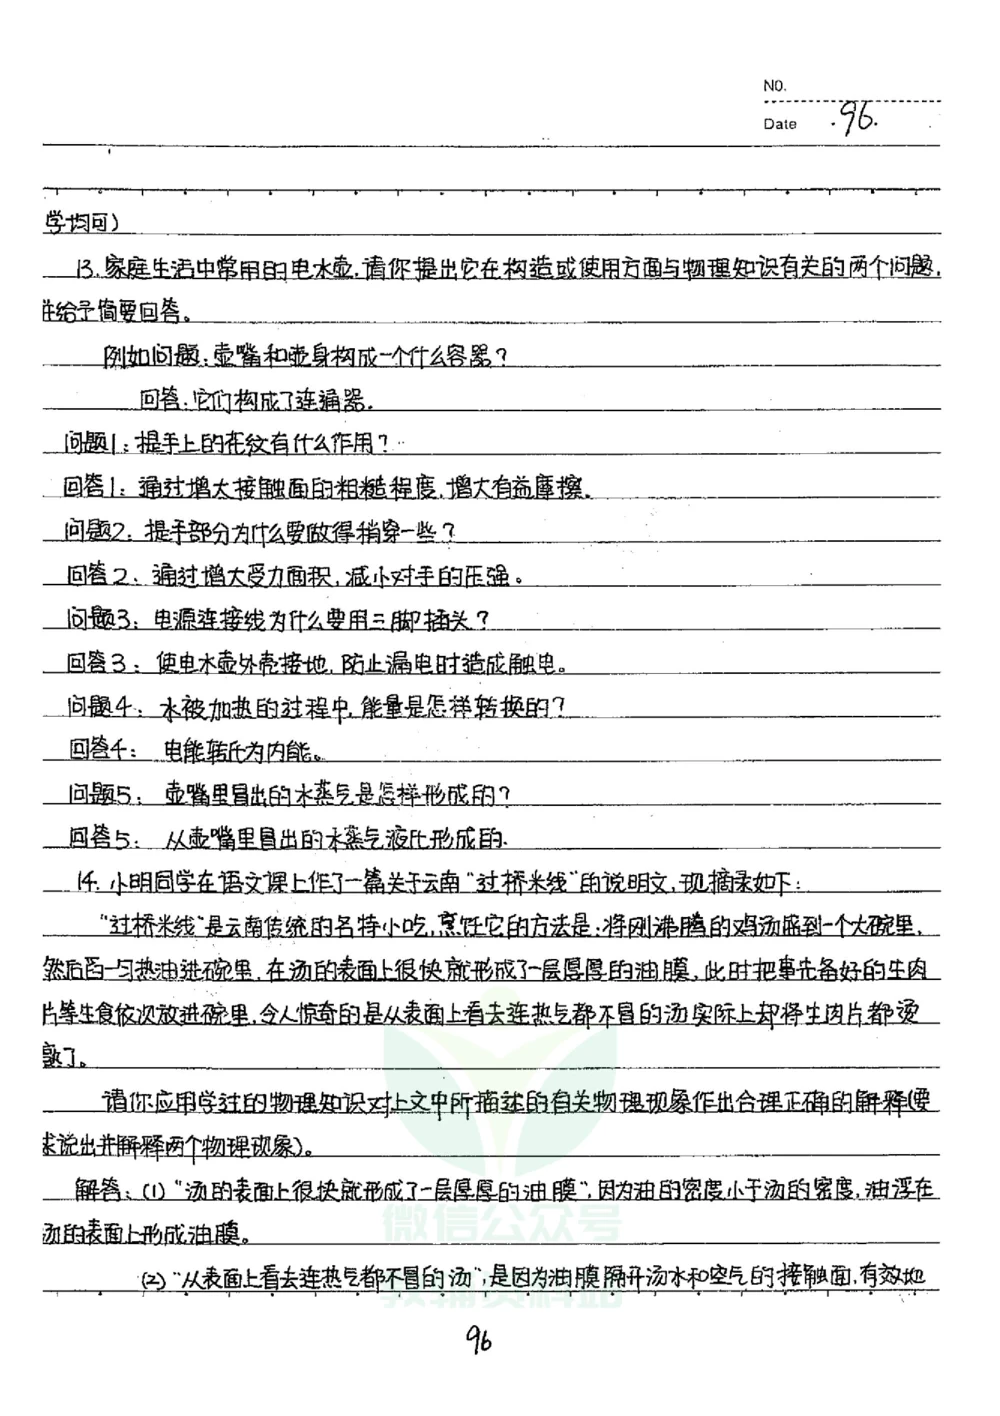 NO.
Date .96.
学均可)
13.家庭生活中常用的电水壶,请你提出它在构造或使用方面与物理知识有关的两个问题,
并给予简要回答。
例如问题:壶嘴和壶身构成一个什么容器?
回答:它们构成了连通器.
问题1:提手上的花纹有什么作用?
回答1:通过增大接触面的粗糙程度,增大有益摩擦.
问题2:提手部分为什么要做得稍穿一些?
回答2:通过增大受力面积,减小对手的压强。
问题3:电源连接线为什么要用三脚插头?
回答3:使电水壶外壳接地,防止漏电时造成触电。
问题4:水被加热的过程中,能量是怎样转换的?
回答4:电能转化为内能。
问题5:壶嘴里冒出的水蒸气是怎样形成的?
回答5:从壶嘴里冒出的水蒸气液化形成的.
14.小明同学在语文课上作了一篇关于云南“过桥米线”的说明文,现摘录如下:
“过桥米线”是云南传统的名特小吃,烹饪它的方法是:将刚沸腾的鸡汤盛到一个大碗里,
然后舀一勺热油进碗里,在汤的表面上很快就形成了一层厚厚的油膜,此时把事先备好的生肉
片等生食依次放进碗里,令人惊奇的是从表面上看去连热气都不冒的汤实际上却将生肉片都烫
熟了。
请你应用学过的物理知识对上文中所描述的有关物理现象作出合理正确的解释(要
求说出并解释两个物理现象)。
解答:(1)“汤的表面上很快就形成了一层厚厚的油膜”,因为油的密度小于汤的密度,油浮在
汤的表面上形成油膜。
(2)“从表面上看去连热气都不冒的汤”,是因为油膜隔开汤水和空气的接触面,有效地
微信公众号
教辅资料站
96